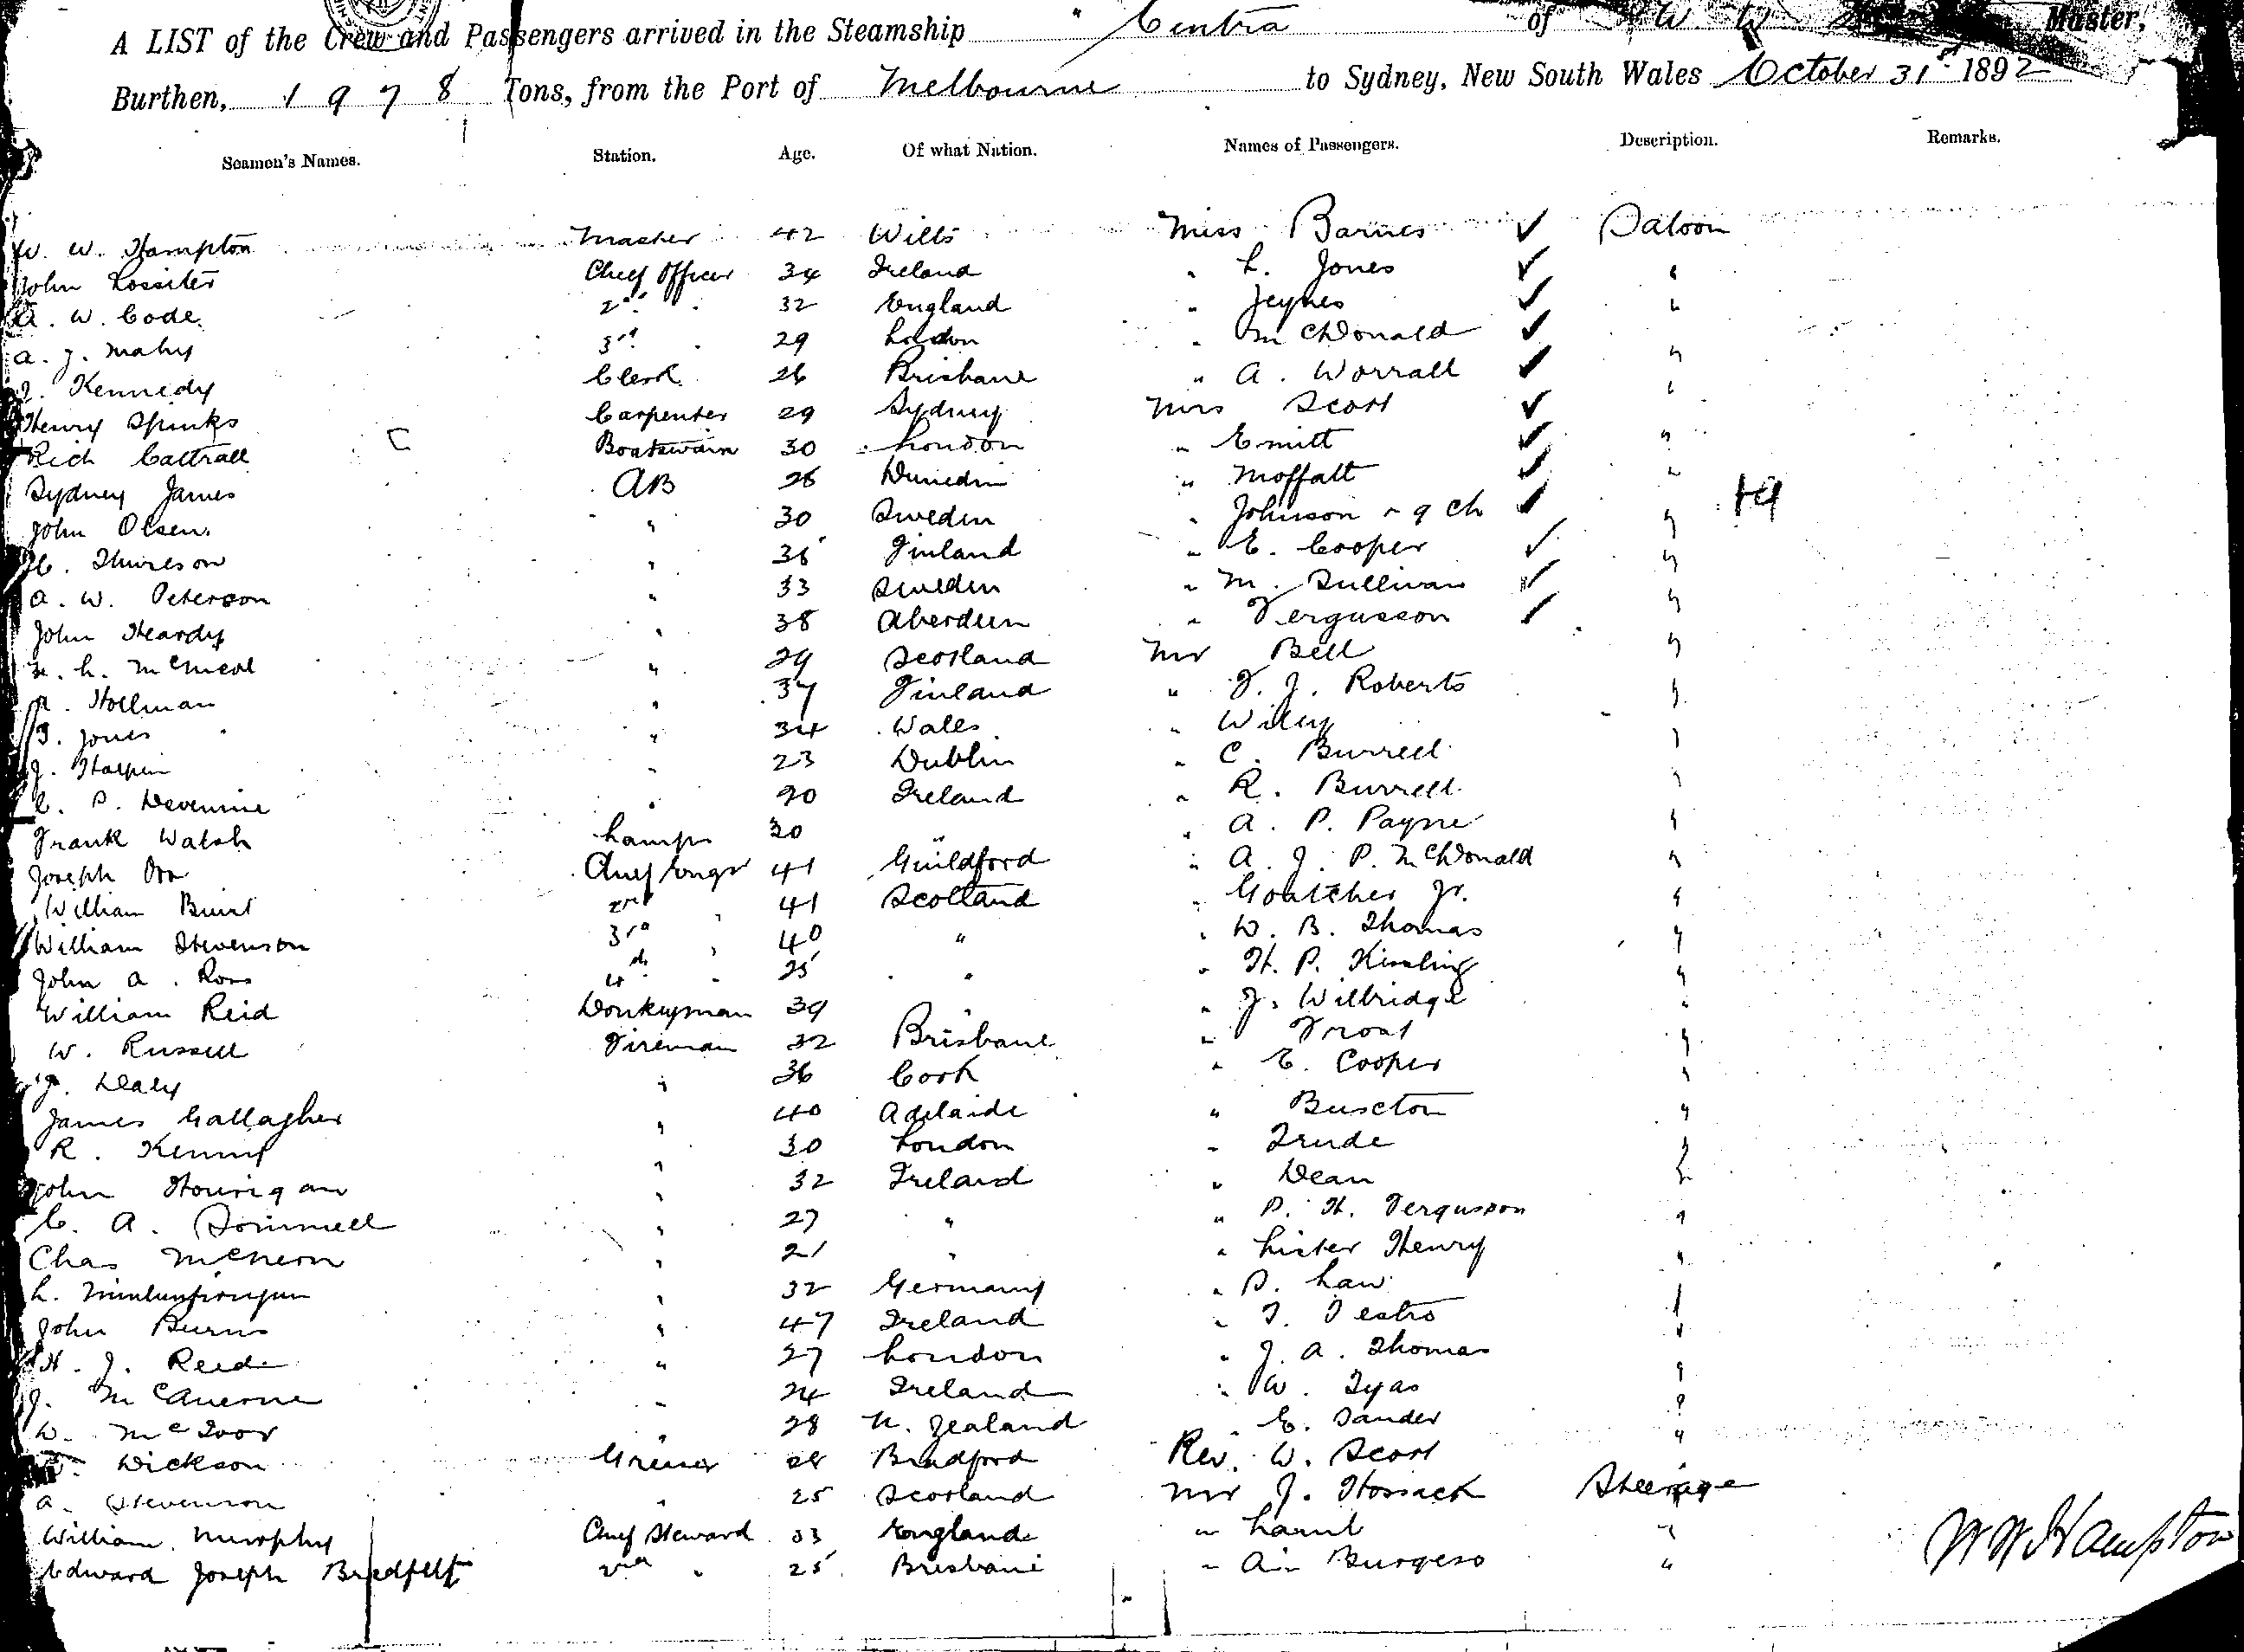 A LIST of the Crew and Passengers arrived in the Steamship " Cintra of W. W. Master,
Burthen, 1978 Tons, from the Port of Melbourne to Sydney, New South Wales October 31st 1892
Seamen's Names. Station. Age. Of what Nation. Names of Passengers. Description. Remarks.
W. W. Hampton Master 42 Wilts Miss Barnes ✓ Saloon
John Rossiter Chief Officer 34 Ireland " L. Jones ✓ "
A. W. Code 2nd " 32 England " Jeynes ✓ "
A. J. Mahy 3rd " 29 London " McDonald ✓ "
J. Kennedy Clerk 26 Brisbane " A. Worrall ✓ "
Henry Spinks Carpenter 29 Sydney Mrs Scott ✓ "
Rich Cattrall Boatswain 30 London " Emitt ✓ "
Sydney James AB 26 Dunedin " Moffatt ✓ "
John Olsen " 30 Sweden " Johnson & 9 Ch ✓ "
Thureson " 35 Finland " E. Cooper ✓ "
A. W. Peterson " 33 Sweden " M. Sullivan ✓ "
John Heardy " 38 Aberdeen " Fergusson ✓ "
L. McNeal " 29 Scotland Mr Bell "
A. Hollman " 37 Finland " F. J. Roberts "
Jones " 34 Wales " Wiley "
J. Halpin " 23 Dublin " C. Burrell "
P. Devenine " 20 Ireland " R. Burrell "
Frank Walsh Lamps 20 " " A. P. Payne "
Joseph Orr Chief Engr 41 Guildford " A. J. P. McDonald "
William Burt 2nd " 41 Scotland " Goatcher Jr. "
William Stevenson 3rd " 40 " " W. B. Thomas "
John A. Ross 4th " 25 " " H. P. Kissling "
William Reid Donkeyman 39 " " J. Wilbridge "
W. Russell Fireman 32 Brisbane " Frost "
J. Daly " 36 Cork " E. Cooper "
James Gallagher " 40 Adelaide " Buscton "
R. Kenny " 30 London " Trude "
John Hourigan " 32 Ireland " Dean "
C. A. " 27 " " P. H. Fergusson "
Chas " 21 " " Lister Henry "
L. " 32 Germany " P. Law "
John Burns " 47 Ireland " T. Testro "
H. J. Reede " 27 London " J. A. Thomas "
J. " 24 Ireland " W. Tyas "
W. McIvor " 28 N. Zealand " E. Sander "
Dickson Greaser 28 Bradford Rev. W. Scott "
A. Stevenson " 25 Scotland Mr J. Hossack Steerage
William Murphy Chief Steward 33 England " "
Edward Joseph 2nd " 25 Brisbane " Burgess "
W W Hampton